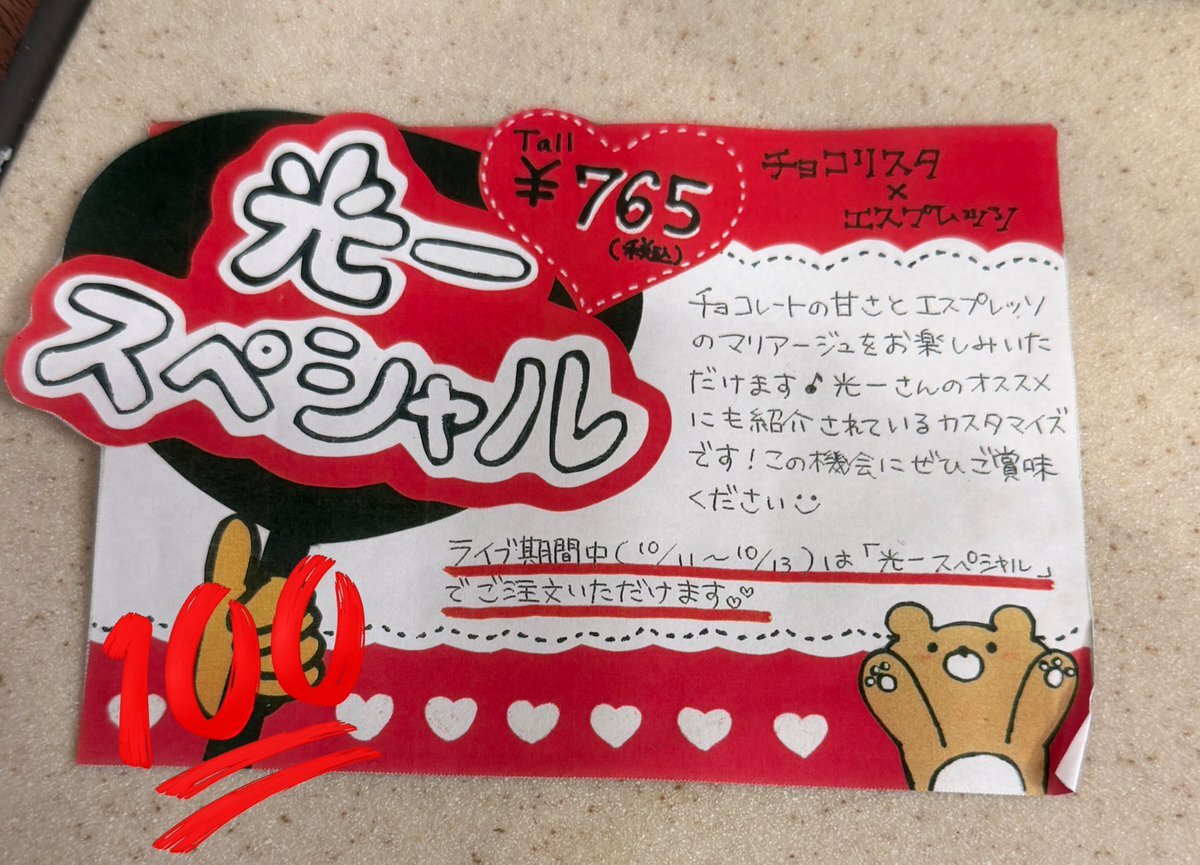 光一
スペシャル
Tall
¥765
(税込)
チョコリスタ
×
エスプレッソ
チョコレートの甘さとエスプレッソ
のマリアージュをお楽しみいた
だけます♪光一さんのオススメ
にも紹介されているカスタマイズ
です!この機会にぜひご賞味
ください
ライブ期間中(10/11〜10/13)は「光一スペシャル」
でご注文いただけます♡♡
100